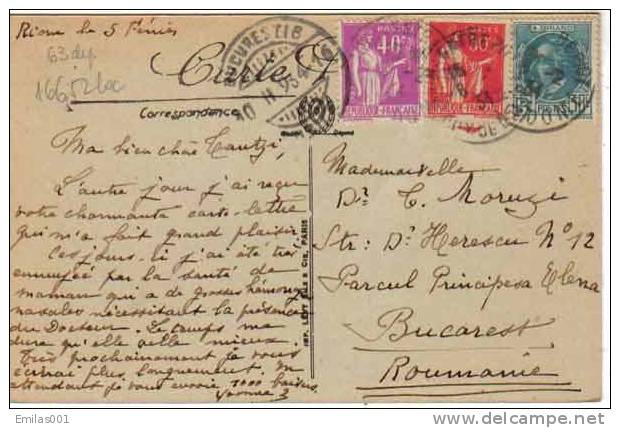 Riom le 5 Février
63 dep
166
Carte P
BUCUREȘTI 6
10 II 934 16
POSTES
40c
RÉPUBLIQUE FRANÇAISE
POSTES
RÉPUBLIQUE FRANÇAISE
A. BRIAND
POSTES 30c
Correspondance
Ma bien chère Tantzi,
L'autre jour j'ai reçu
votre charmante carte-lettre
qui m'a fait grand plaisir
Ces jours-ci j'ai été très
ennuyée par la santé de
maman qui a de grosses hémorrag.
nasales nécessitant la présence
du Docteur. Le temps me
dure qu'elle aille mieux.
Très prochainement je vous
écrirai plus longuement. En
attendant je vous envoie 1000 baisers
Yvonne
IMP. LEVY FILS & Cie, PARIS
Mademoiselle
Dr. C. Moruzi
Str: Dr Herescu No 12
Parcul Principesa Elena
Bucarest
Roumanie
Emilas001
delcampe.net